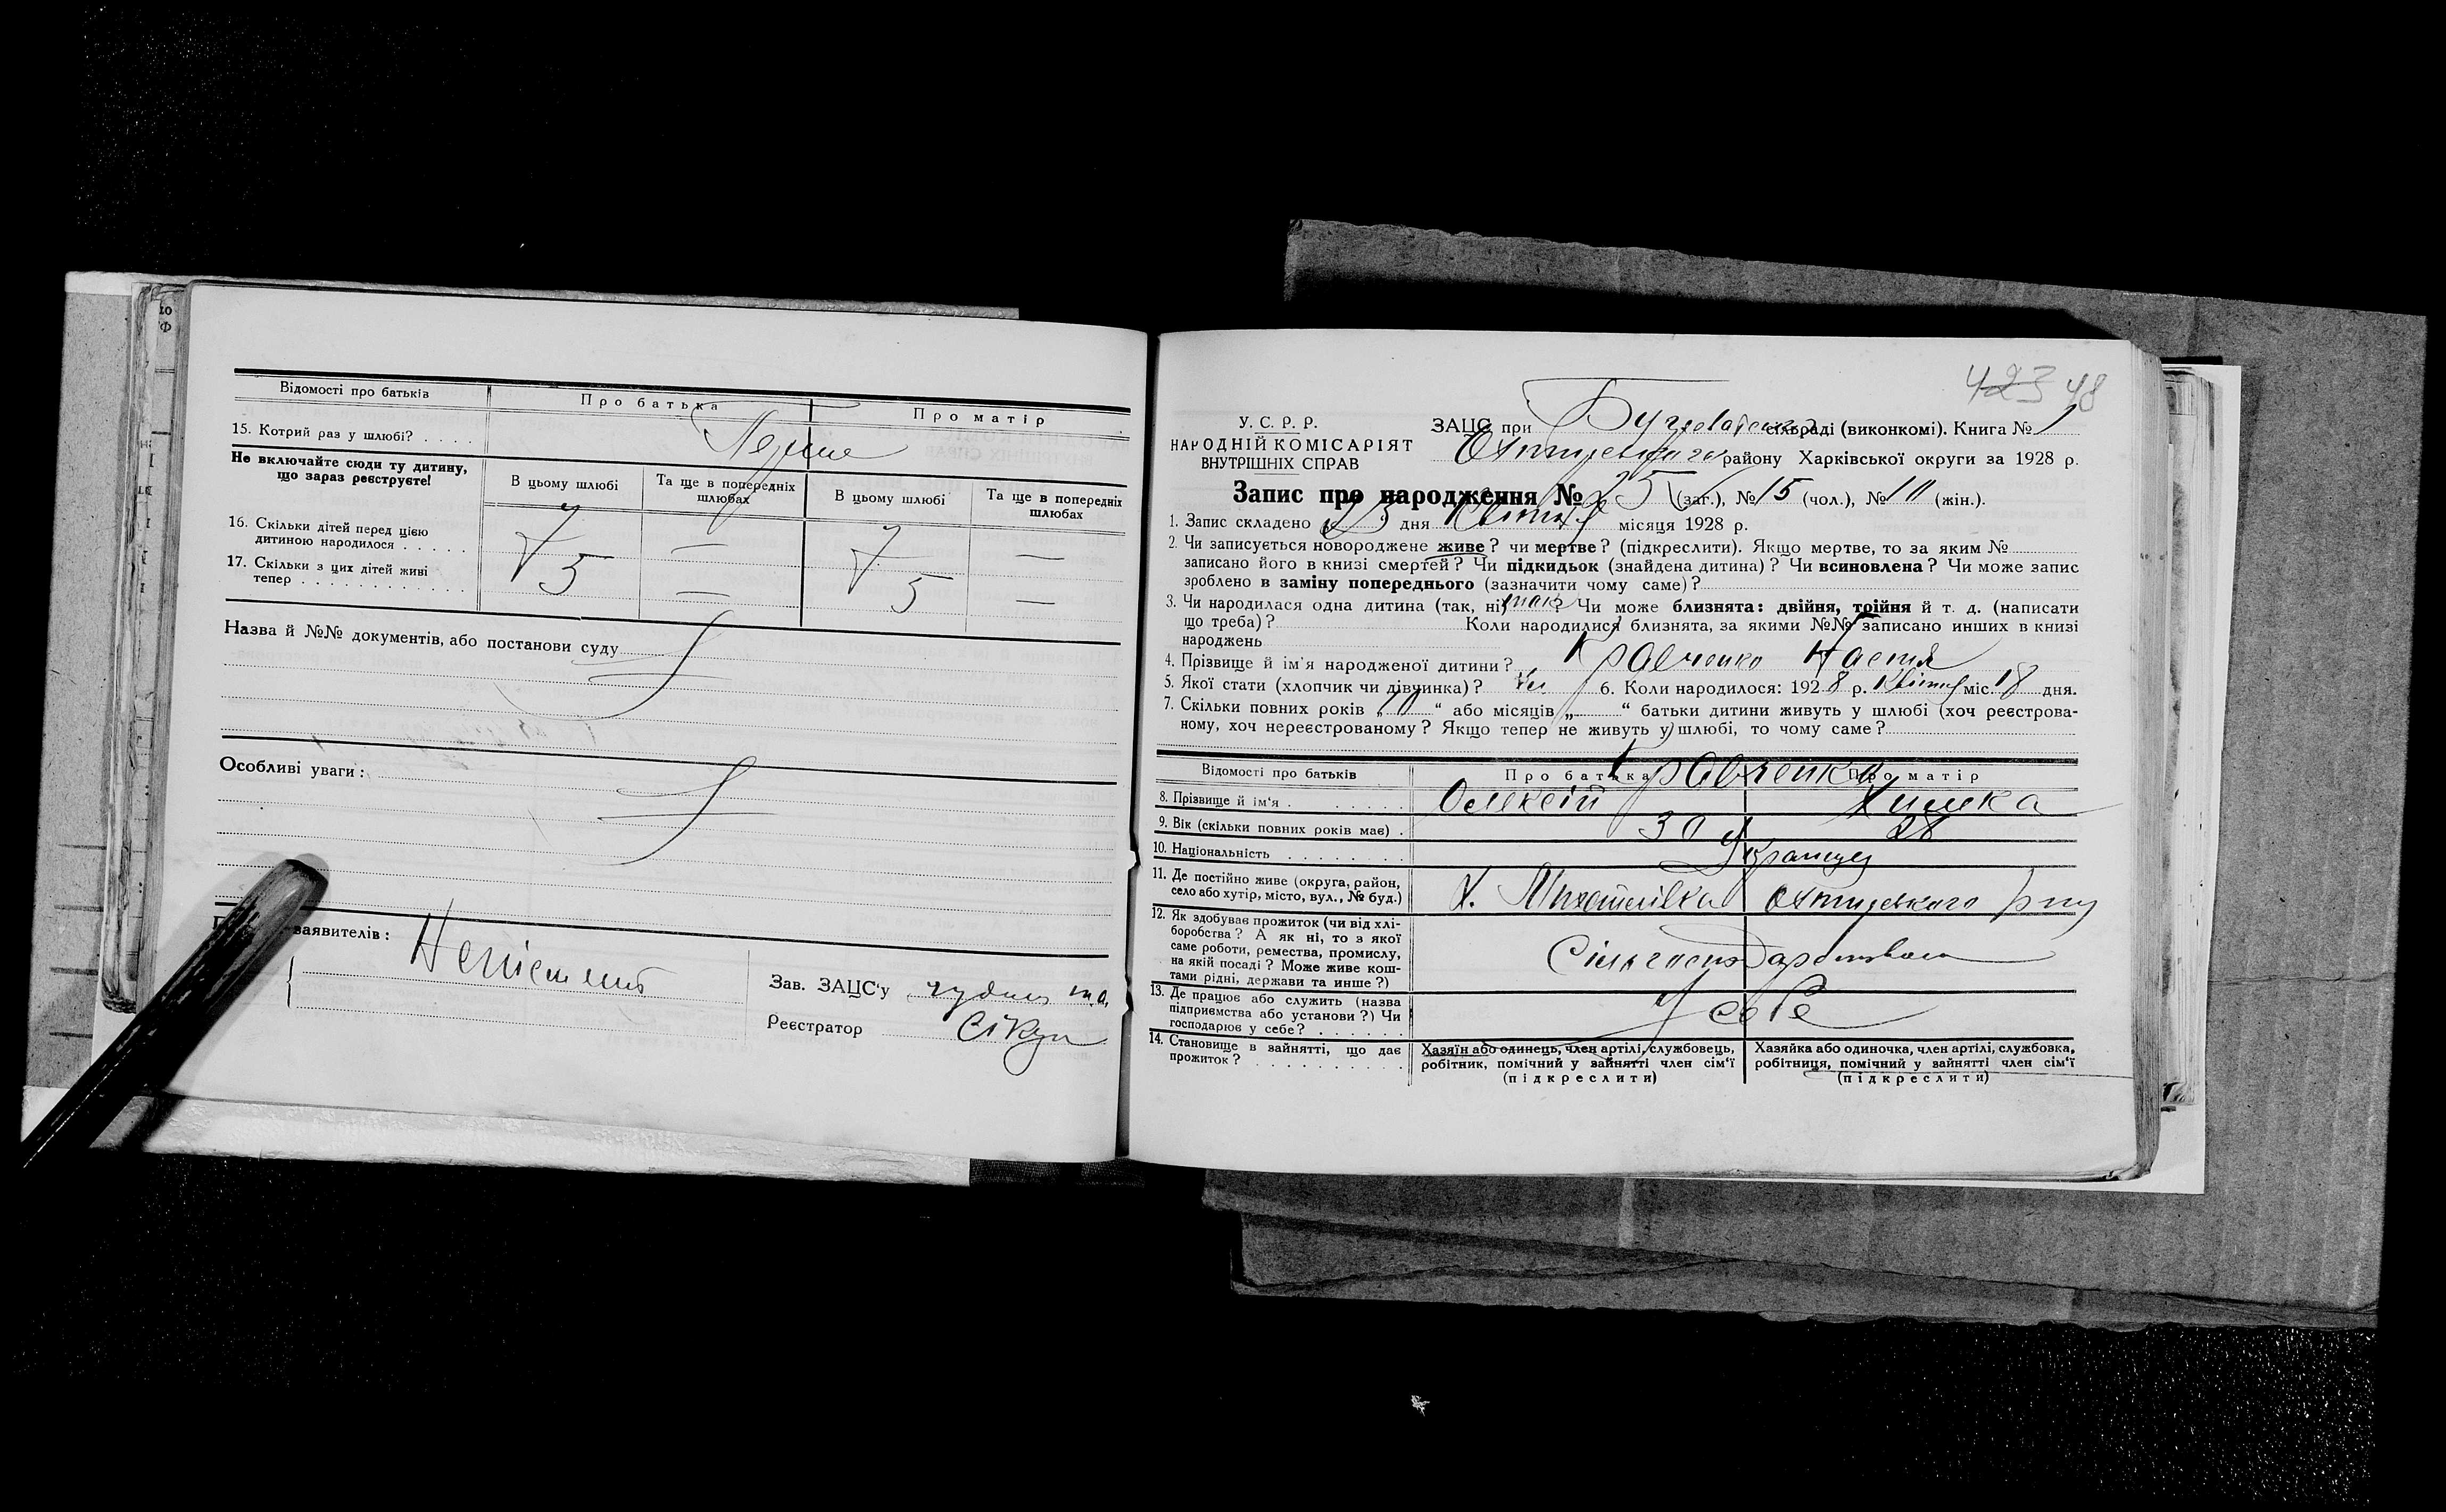 Відомості про батьків
Про батька
Про матір
15. Котрий раз у шлюбі? . . . .
Перше
Не включайте сюди ту дитину,
що зараз реєструєте!
В цьому шлюбі
Та ще в попередніх
шлюбах
В цьому шлюбі
Та ще в попередніх
шлюбах
16. Скільки дітей перед цією
дитиною народилося . . . . .
7 — 7 —
17. Скільки з цих дітей живі
тепер . . . . . . . . . . .
5 — 5 —
Назва й №№ документів, або постанови суду
Особливі уваги:
заявителів:
Неписьмен
Зав. ЗАЦС'у
Реєстратор
423 48
У. С. Р. Р.
НАРОДНІЙ КОМІСАРІЯТ
ВНУТРІШНІХ СПРАВ
ЗАЦС при сільраді (виконкомі). Книга № 1
Охтирського району Харківської округи за 1928 р.
Запис про народження № 25 (заг.), № 15 (чол.), № 10 (жін.).
1. Запис складено 23 дня Квітня місяця 1928 р.
2. Чи записується новороджене живе? чи мертве? (підкреслити). Якщо мертве, то за яким №
записано його в книзі смертей? Чи підкидьок (знайдена дитина)? Чи всиновлена? Чи може запис
зроблено в заміну попереднього (зазначити чому саме)?
3. Чи народилася одна дитина (так, ні) так? Чи може близнята: двійня, трійня й т. д. (написати
що треба)? Коли народилися близнята, за якими №№ записано инших в книзі
народжень
4. Прізвище й ім'я народженої дитини? Кравченко Настя
5. Якої стати (хлопчик чи дівчинка)? 6. Коли народилося: 1928 р. Квітня міс. 18 дня.
7. Скільки повних років „10“ або місяців „ “ батьки дитини живуть у шлюбі (хоч реєстрова-
ному, хоч нереєстрованому? Якщо тепер не живуть у шлюбі, то чому саме?
Відомості про батьків
Про батька
Про матір
Кравченко
8. Прізвище й ім'я . . . . . .
Олексій
Химка
9. Вік (скільки повних років має) .
30
28
10. Національність . . . . . . . .
Українці
11. Де постійно живе (округа, район,
село або хутір, місто, вул., № буд.)
Х. Михайлівка Охтирського р-ну
12. Як здобуває прожиток (чи від хлі-
боробства? А як ні, то з якої
саме роботи, ремества, промислу,
на якій посаді? Може живе кош-
тами рідні, держави та инше?)
13. Де працює або служить (назва
підприємства або установи?) Чи
господарює у себе? . . . . . .
У себе
14. Становище в зайнятті, що дає
прожиток? . . . . . . . . . .
Хазяїн або одинець, член артілі, службовець,
робітник, помічний у зайнятті член сім'ї
(підкреслити)
Хазяйка або одиночка, член артілі, службовка,
робітниця, помічний у зайнятті член сім'ї
(підкреслити)